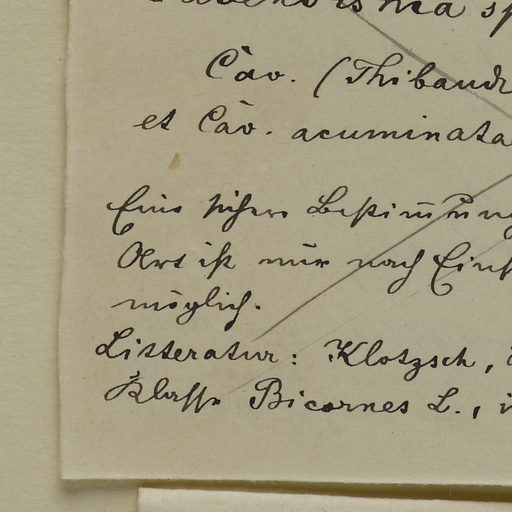 Cav. (Thibaud
et Cav. acuminata
Eine sichere Bestimmung
Art ist nur nach Eins
möglich.
Litteratur: Klotzsch,
Klasse Bicornes L., i